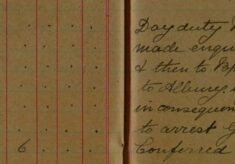 Day duty
made enqu
& then to
to Albury,
in consequen
to arrest G
Conferred
6